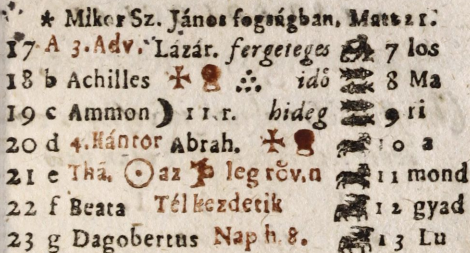 * Mikor Sz. János fogságban, Matt. 11.
17 A 3. Adv. Lázár. fergeteges 7 los
18 b Achilles idő 8 Ma
19 c Ammon 11.r. hideg 9 ri
20 d 4. Kántor Abrah. 10 a
21 e Thā. az leg röv.n 11 mond
22 f Beata Tél kezdetik 12 gyad
23 g Dagobertus Nap h. 8. 13 Lu